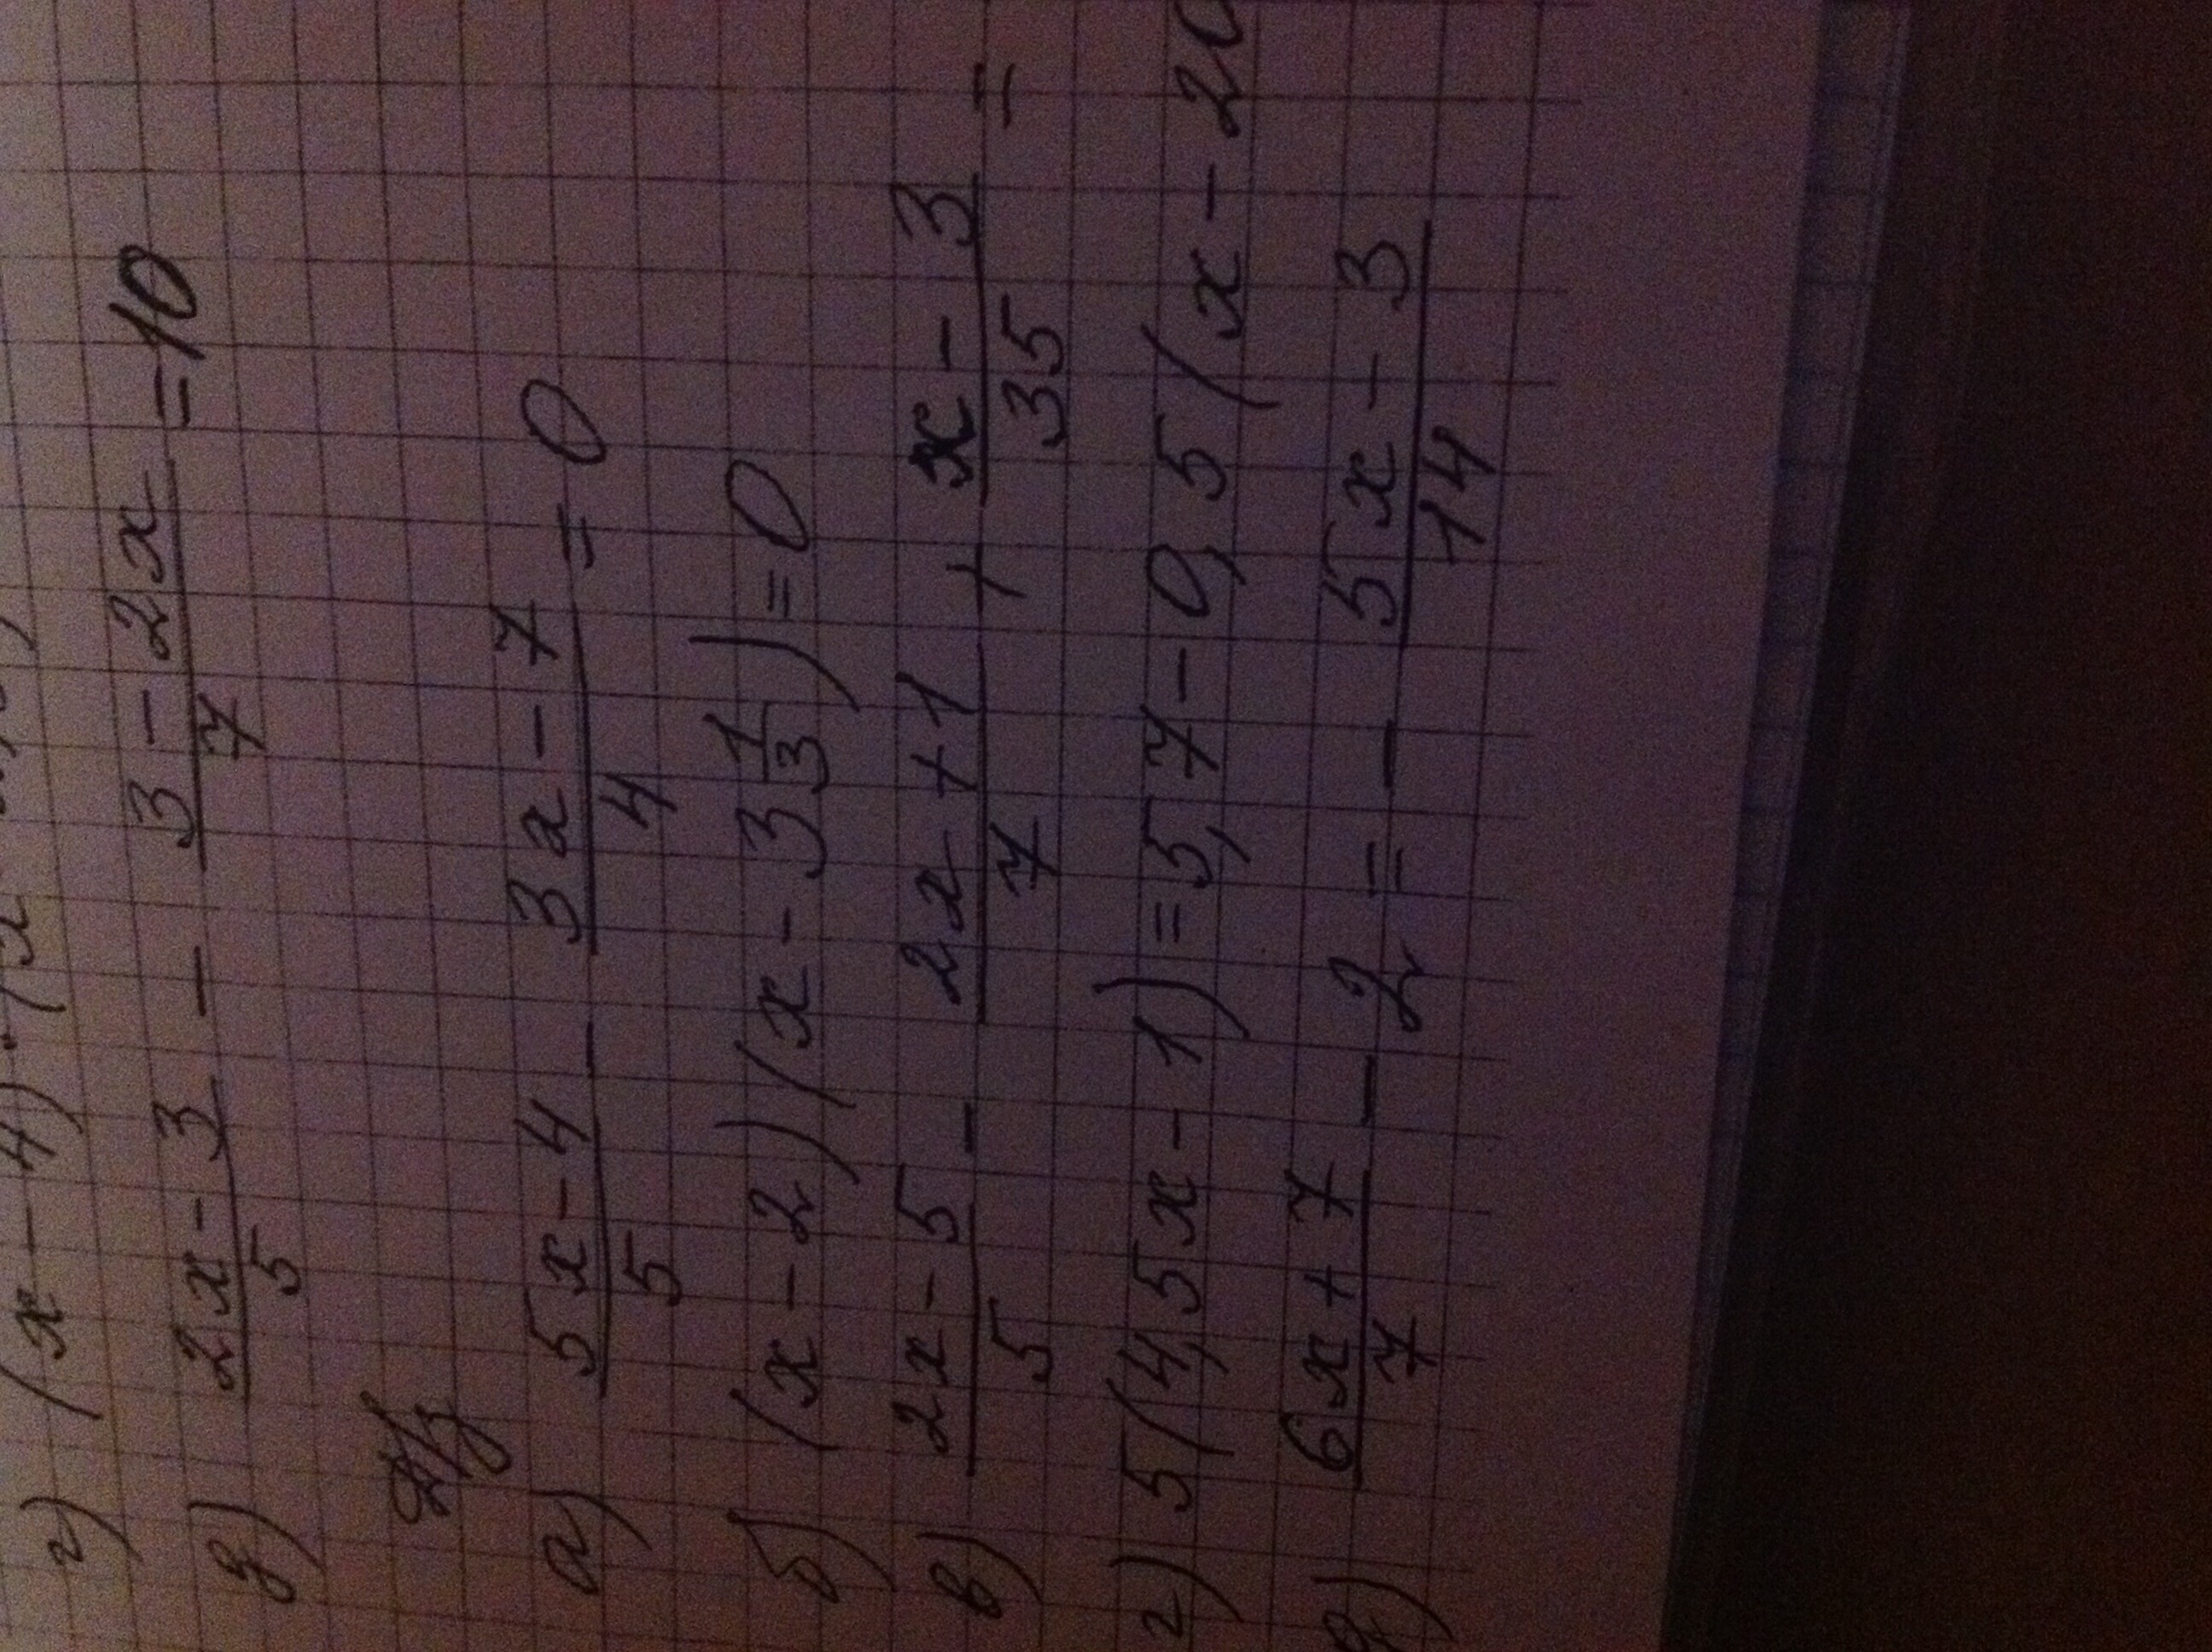 г) (x - 4)
д) (2x - 3)/5 - (3 - 2x)/7 = 10
Д/з
а) (5x - 4)/5 - (3x - 7)/4 = 0
б) (x - 2)(x - 3 1/3) = 0
в) (2x - 5)/5 - (2x + 1)/7 + (x - 3)/35 =
г) 5(4,5x - 1) = 5,7 - 0,5(x - 20
д) (6x + 7)/7 - 2 = - (5x - 3)/14